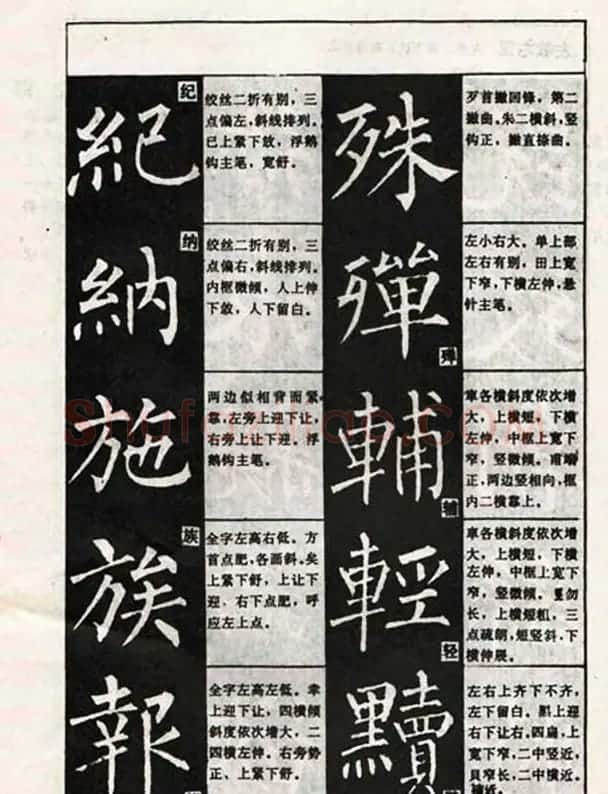 殊
歹首撇回锋，第二
撇曲。朱二横斜，竖
钩正，撇直捺曲。
殫
殚
左小右大。单上部
左右有别，田上宽
下窄，下横左伸，悬
针主笔。
輔
辅
車各横斜度依次增
大，上横短，下横
左伸，中框上宽下
窄，竖微倾。甫端
正，两边竖相向，框
内二横靠上。
輕
轻
車各横斜度依次增
大，上横短，下横
左伸，中框上宽下
窄，竖微倾。 勿
长，上横短粗，三
点疏朗，短竖斜，下
横伸展。
黷
左右上齐下不齐，
左下留白。黑上迎
右下让右。四扁，上
宽下窄，二中竖近，
貝窄长，二中横近。
紀
纪
绞丝二折有别，三
点偏左，斜线排列。
已上紧下放，浮鹅
钩主笔，宽舒。
納
纳
绞丝二折有别，三
点偏右，斜线排列。
内框微倾，人上伸
下敛，人下留白。
施
两边似相背而紧
靠，左旁上迎下让，
右旁上让下迎。浮
鹅钩主笔。
族
族
全字左高右低。方
首点肥，各画斜。矣
上紧下舒，上让下
迎，右下点肥，呼
应左上点。
報
全字左高左低。幸
上迎下让，四横倾
斜度依次增大，二
四横左伸。右旁势
正、上紧下舒。